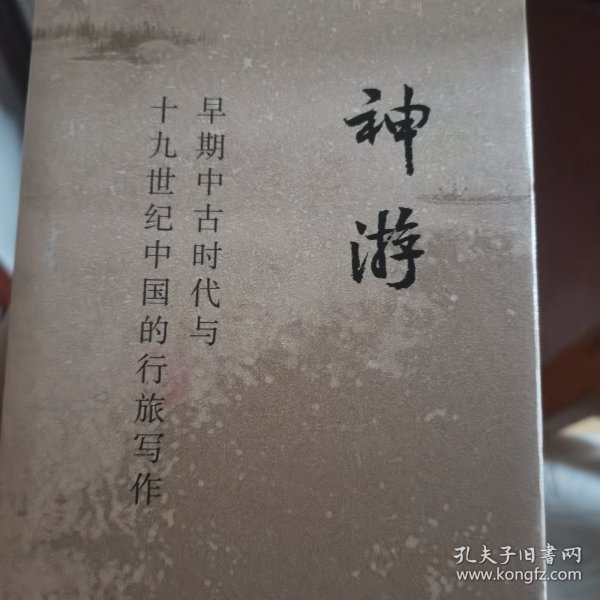 神游
早期中古时代与
十九世纪中国的行旅写作
孔夫子旧書网
www.kongfz.com